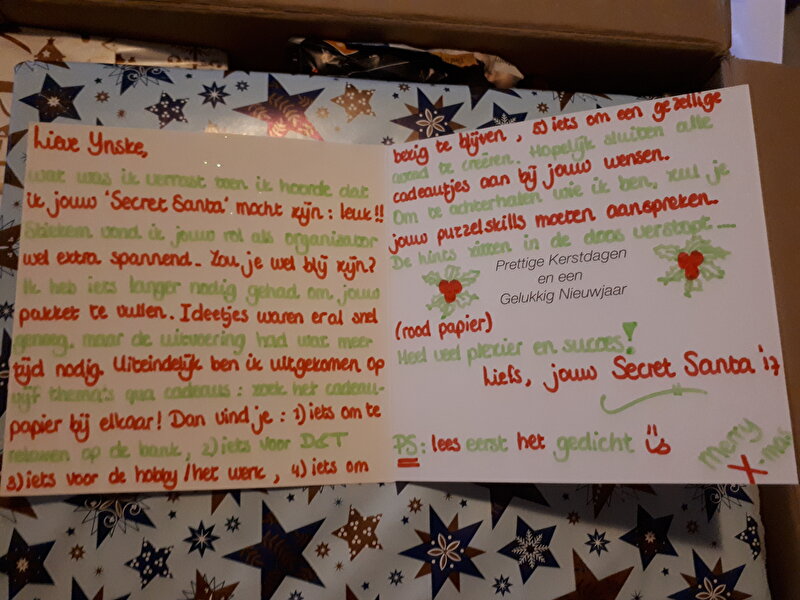 Lieve Ynske,
wat was ik verrast toen ik hoorde dat
ik jouw 'Secret Santa' mocht zijn: leuk!!
Stiekem vond ik jouw rol als organisator
wel extra spannend.. Zou je wel blij zijn?
Ik heb iets langer nodig gehad om jouw
pakket te vullen. Ideetjes waren er al snel
genoeg, maar de uitvoering had wat meer
tijd nodig. Uiteindelijk ben ik uitgekomen op
vijf thema's qua cadeaus: zoek het cadeau-
papier bij elkaar! Dan vind je: 1) iets om te
relaxen op de bank, 2) iets voor
3) iets voor de hobby/het werk, 4) iets om
bezig te blijven, 5) iets om een gezellige
avond te creëren. Hopelijk sluiten alle
cadeautjes aan bij jouw wensen.
Om te achterhalen wie ik ben, zul je
jouw puzzelskills moeten aanspreken.
De hints zitten in de doos verstopt ...
Prettige Kerstdagen
en een
Gelukkig Nieuwjaar
(rood papier)
Heel veel plezier en succes!
Liefs, jouw Secret Santa '17
PS: lees eerst het gedicht
Merry
X-mas